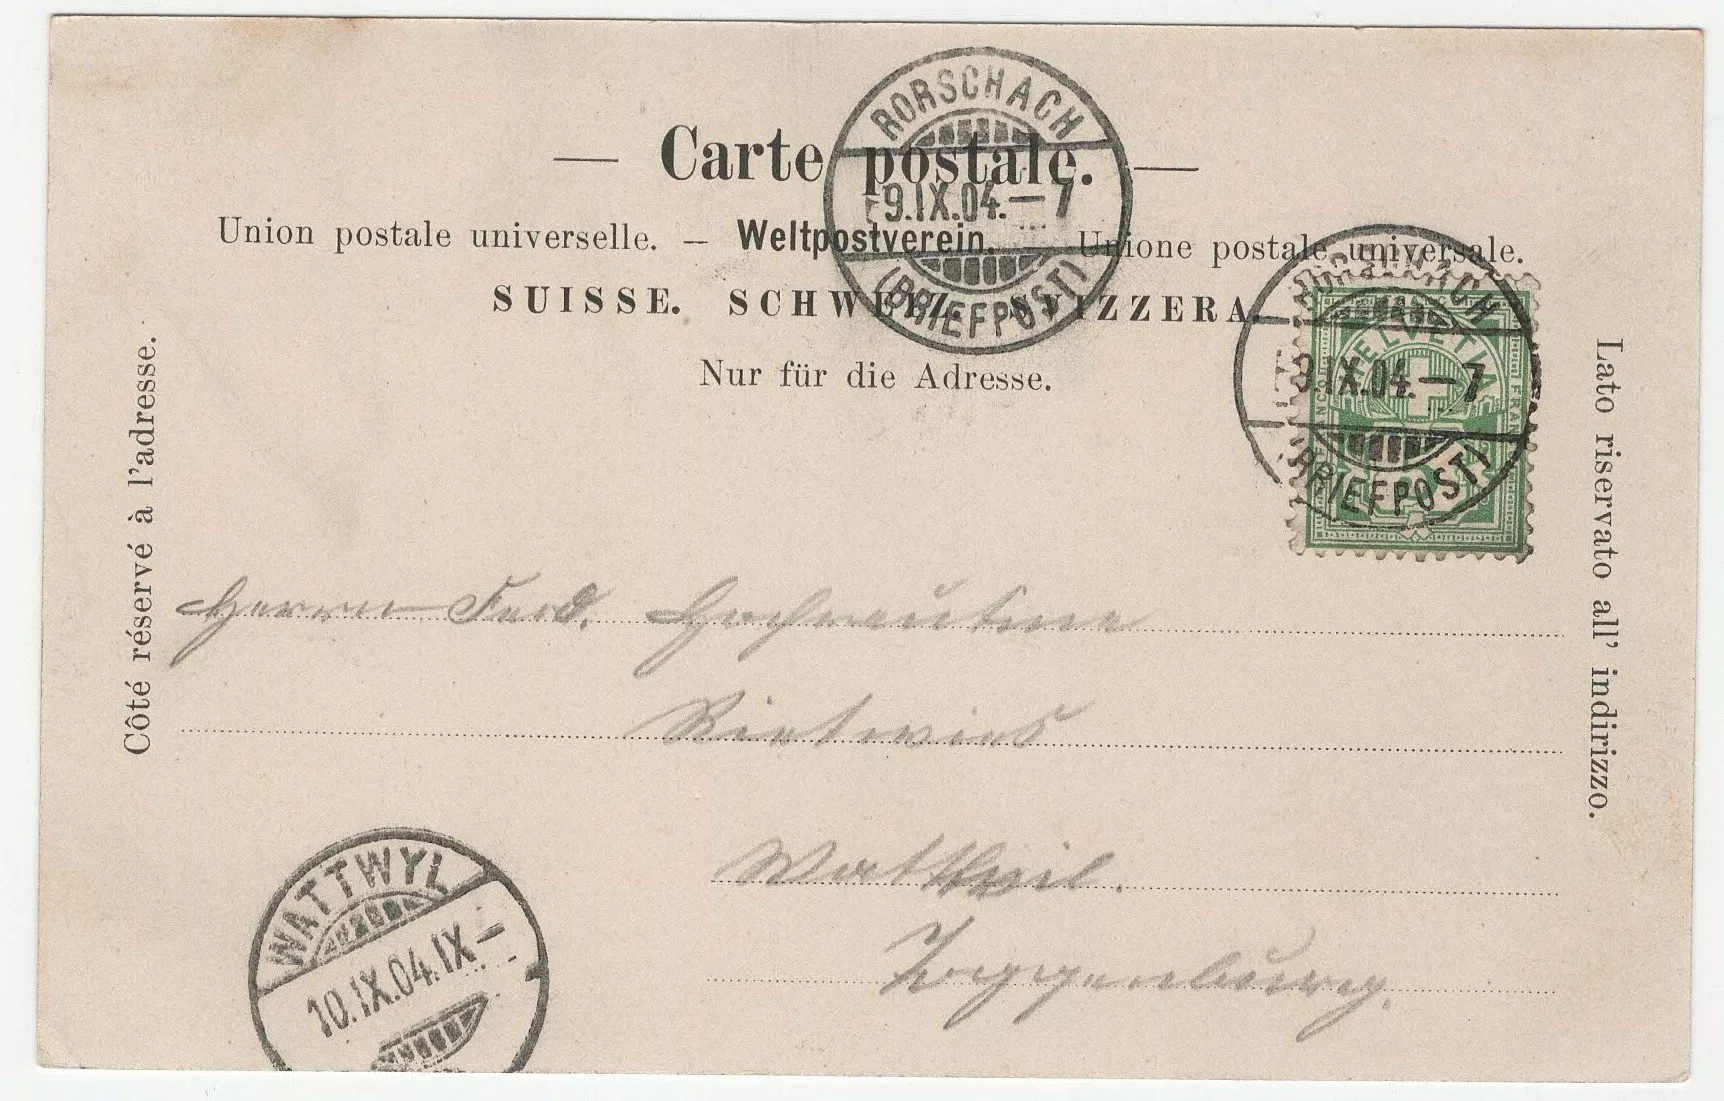 RORSCHACH
— Carte postale. —
9.IX.04.–7
Union postale universelle. – Weltpostverein. – Unione postale universale.
(BRIEFPOST)
SUISSE. SCHWEIZ. SVIZZERA.
Nur für die Adresse.
RORSCHACH
HELVETIA
9.IX.04.–7
FRANCO
(BRIEFPOST)
Côté réservé à l'adresse.
Lato riservato all' indirizzo.
Herrn Ferd.
Rietwies
Wattwil.
Toggenburg.
WATTWYL
10.IX.04.IX–